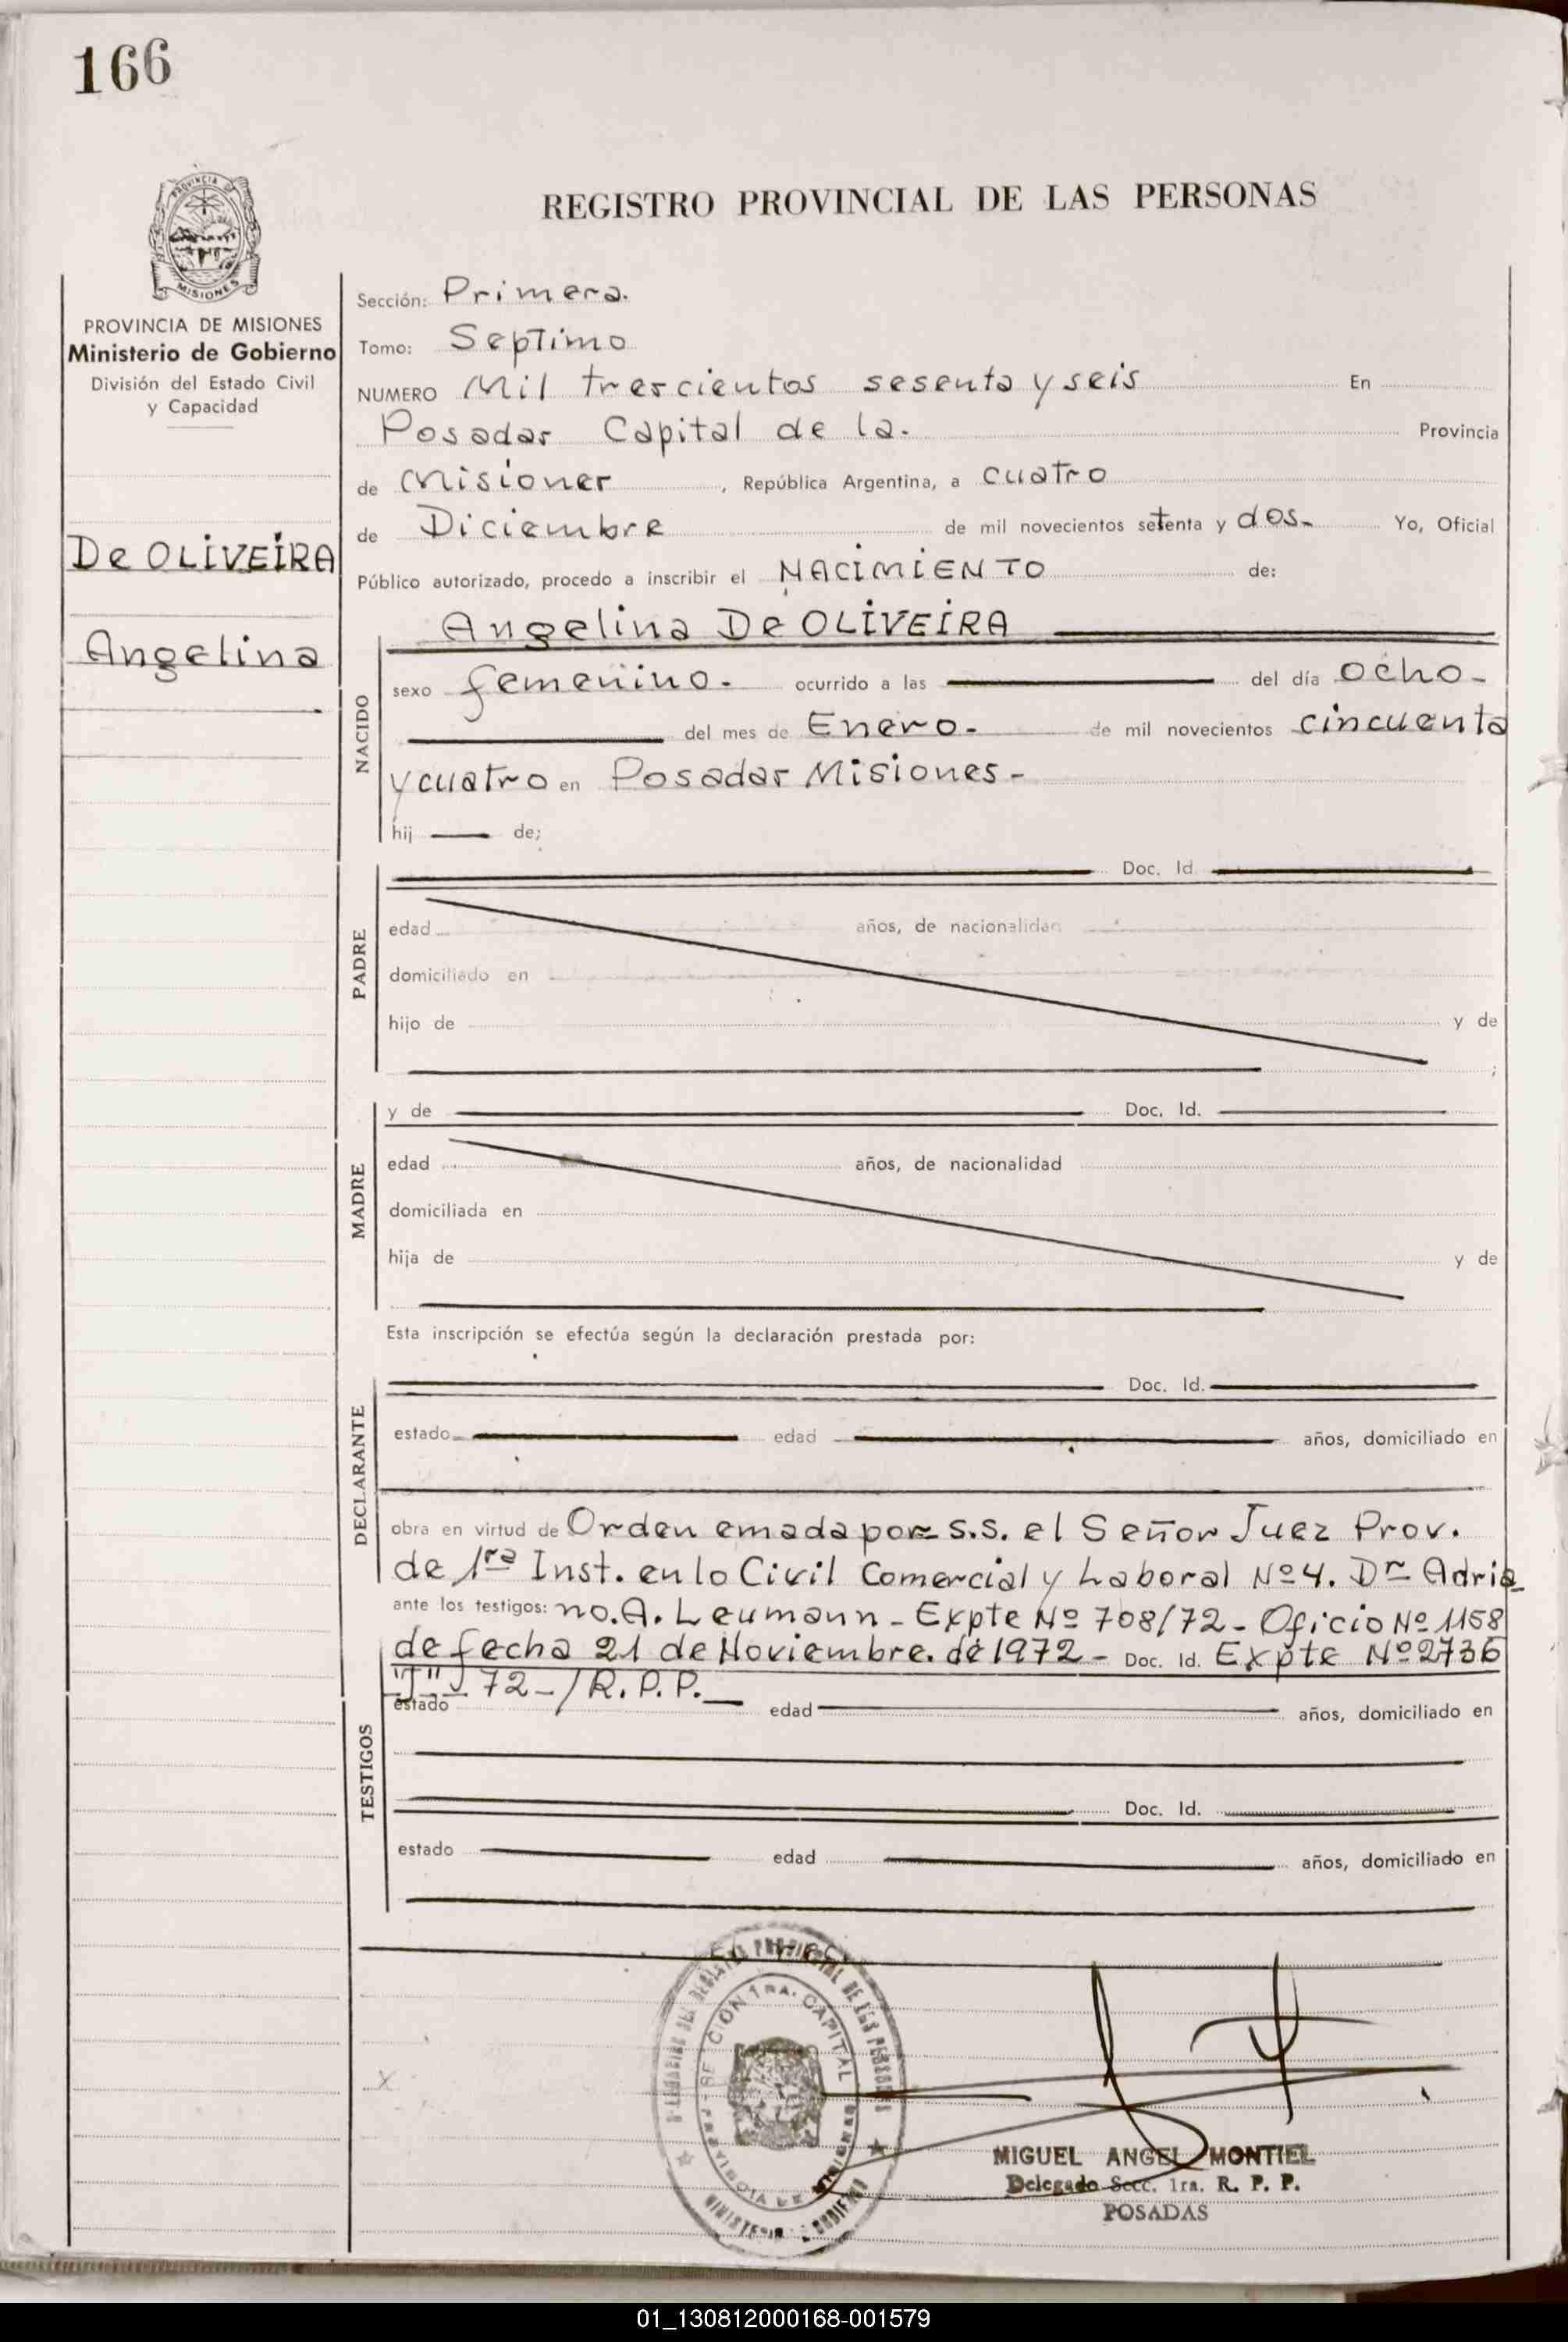 166
REGISTRO PROVINCIAL DE LAS PERSONAS
MISIONES
PROVINCIA DE MISIONES
Ministerio de Gobierno
División del Estado Civil
y Capacidad
De OLIVEIRA
Angelina
Sección: Primera.
Tomo: Septimo
NUMERO Mil trescientos sesenta y seis En
Posadas Capital de la. Provincia
de Misiones, República Argentina, a cuatro
de Diciembre de mil novecientos setenta y dos. Yo, Oficial
Público autorizado, procedo a inscribir el NACIMIENTO de:
NACIDO
Angelina De OLIVEIRA
sexo femenino. ocurrido a las del día ocho-
del mes de Enero. de mil novecientos cincuenta
y cuatro en Posadas Misiones-
hij de;
PADRE
Doc. Id.
edad años, de nacionalidad
domiciliado en
hijo de y de
;
MADRE
y de Doc. Id.
edad años, de nacionalidad
domiciliada en
hija de y de
Esta inscripción se efectúa según la declaración prestada por:
DECLARANTE
Doc. Id.
estado edad años, domiciliado en
obra en virtud de Orden emada por S.S. el Señor Juez Prov.
de 1ra Inst. en lo Civil Comercial y Laboral Nº 4. Dr Adria
ante los testigos: no. A. Leumann - Expte Nº 708/72 - Oficio Nº 1158
de fecha 21 de Noviembre. de 1972 - Doc. Id. Expte Nº 2736
"J" 72 - / R. P. P.
TESTIGOS
estado edad años, domiciliado en
Doc. Id.
estado edad años, domiciliado en
SECCION 1RA. CAPITAL
PROVINCIA DE MISIONES
MIGUEL ANGEL MONTIEL
Delegado Secc. 1ra. R. P. P.
POSADAS
01_130812000168-001579